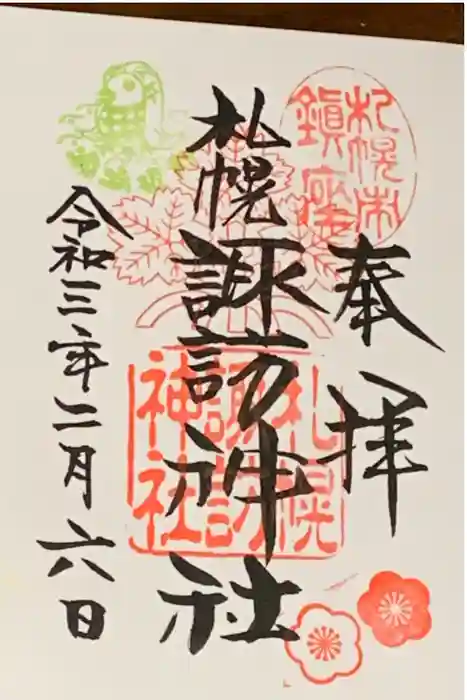 奉拝
札幌市鎮座
札幌諏訪神社
札幌諏訪神社
令和三年二月六日